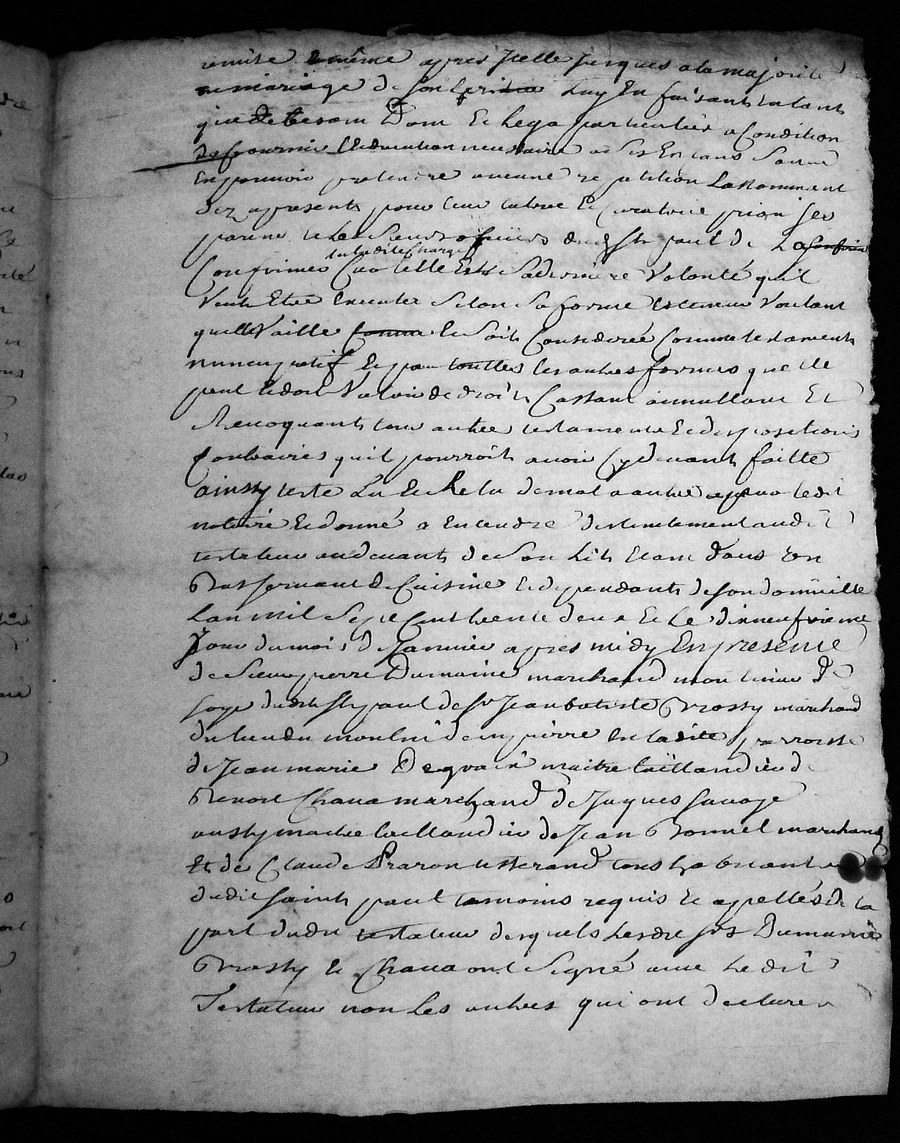 remise même apres Jcelle Jusques a la majorité
mariage de son heritier Luy En faisant En tant
que de besoin Dom Et Lega particulier a Condition
de fournir L'Education necessaire a ses Enfans sans
En pouvoir pretendre aucune repetition La nommant
dez apresent pour leur tutrice Et Curatrice priant ses
parens Et Les Sieurs officiers dudt St paul de La confirmer
en la dite charge
Confirmer Car telle Est sa derniere Volonté quil
Veut Etre Executée Selon sa forme Et teneur Voulant
quelle Vaille comme Et soit Considerée Comme testament
nuncupatif Et par touttes les autres formes quelle
peut Et doit Valoir de droit Cassant annullant Et
Revoquant tous autres testaments Et dispositions
Contraires quil pourroit avoir Cydevant faitte
ainssy testé Lu Et Relu de mot a autre par ledit
notaire Et donné a Entendre distinctement audit
testateur au devant de son Lit Etant dans un
Bas servant de Cuisine Et dependant de son domicille
Lan mil Sept Cent trente deux Et Le dixneufvieme
Jour du mois de Janvier apres midy En presence
de Sieur pierre Dumaine marchand moulinier de
soye dudit St paul de Sr Jean batiste Brossy marchand
du lieu du moulin En la dite parroisse
de Jean marie maitre taillandier de
Benoit Chava marchand de Jaques Sauvage
aussy maitre taillandier de Jean Bonnel marchand
Et de Claude Praron tisserand tous habitants
dudit saint paul temoins requis Et appellés de la
part dudit testateur desquels Lesdits Srs Dumaine
Brossy Et Chava ont Signé avec Le dit
Testateur non Les autres qui ont declaré